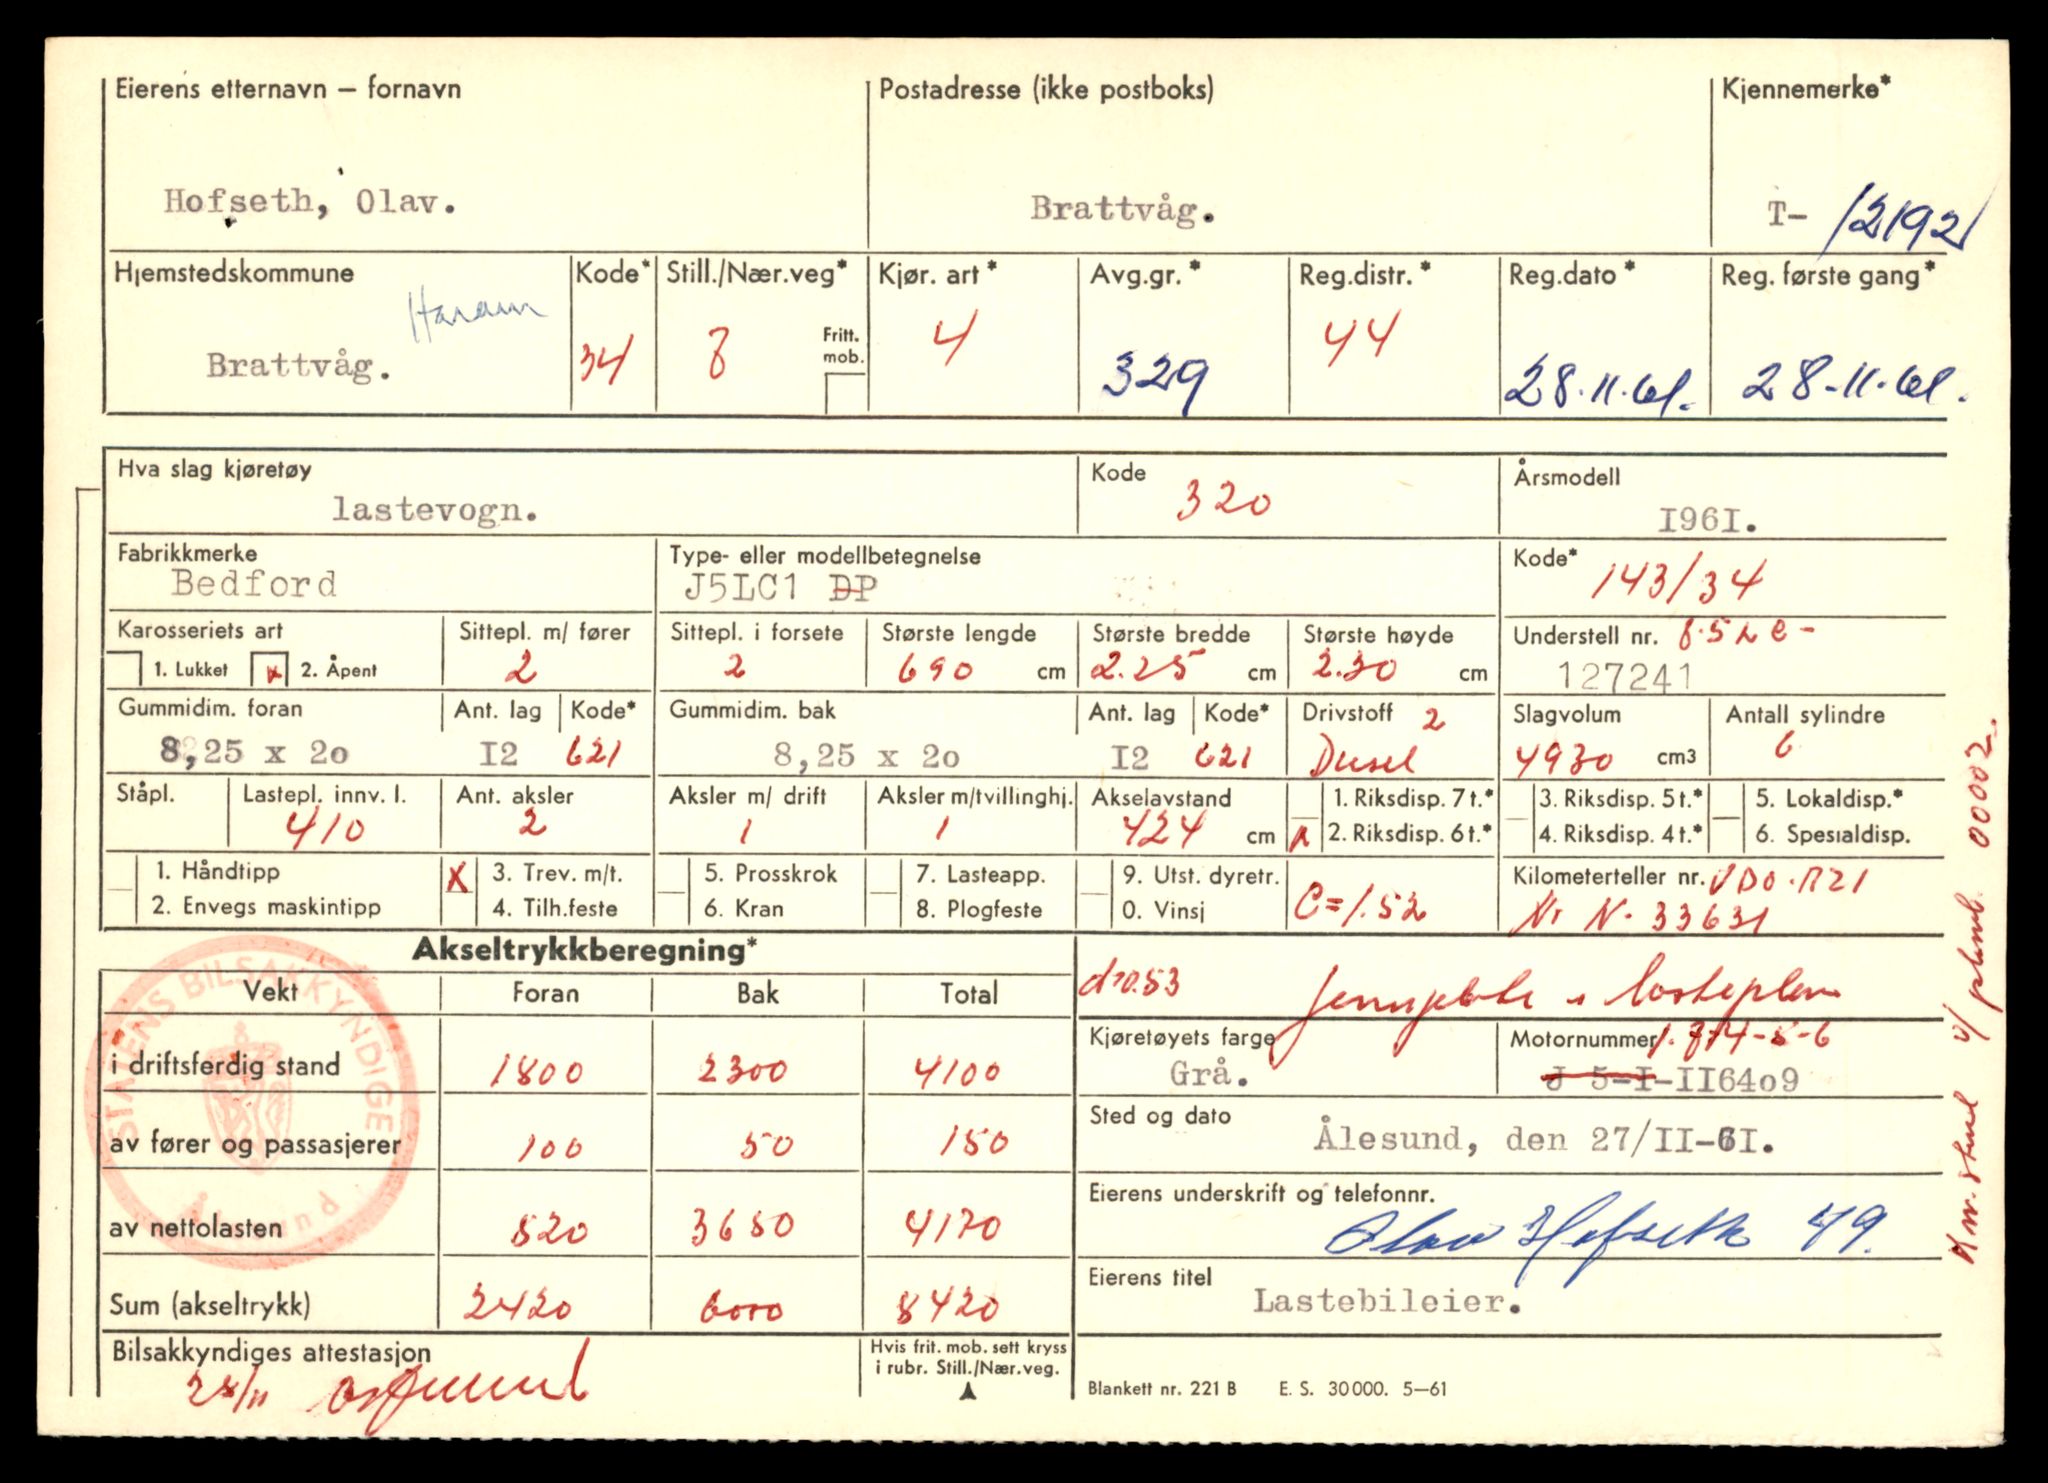 Eierens etternavn – fornavn Postadresse (ikke postboks) Kjennemerke*
Hofseth, Olav. Brattvåg. T- 12192
Hjemstedskommune Kode* Still./Nær.veg* Kjør. art* Avg.gr.* Reg.distr.* Reg.dato* Reg. første gang*
Haram
Brattvåg. 34 8 Fritt. mob. 4 329 44 28.11.61. 28-11.61.
Hva slag kjøretøy Kode Årsmodell
lastevogn. 320 I96I.
Fabrikkmerke Type- eller modellbetegnelse Kode*
Bedford J5LC1 DP 143/34
Karosseriets art Sittepl. m/ fører Sittepl. i forsete Største lengde Største bredde Største høyde Understell nr.
1. Lukket x 2. Åpent 2 2 690 cm 2.25 cm 2.30 cm 127241
Gummidim. foran Ant. lag Kode* Gummidim. bak Ant. lag Kode* Drivstoff 2 Slagvolum Antall sylindre
8,25 x 2o I2 621 8,25 x 2o I2 621 Diesel 4930 cm3 6
Ståpl. Lastepl. innv. l. Ant. aksler Aksler m/ drift Aksler m/tvillinghj. Akselavstand 1. Riksdisp. 7 t.* 3. Riksdisp. 5 t.* 5. Lokaldisp.*
410 2 1 1 424 cm 2. Riksdisp. 6 t.* 4. Riksdisp. 4 t.* 6. Spesialdisp.
1. Håndtipp X 3. Trev. m/t. 5. Prosskrok 7. Lasteapp. 9. Utst. dyretr. Kilometerteller nr. VDO.
2. Envegs maskintipp 4. Tilh.feste 6. Kran 8. Plogfeste 0. Vinsj C=1.52 Nr N. 33631
Akseltrykkberegning*
Vekt Foran Bak Total
i driftsferdig stand 1800 2300 4100
av fører og passasjerer 100 50 150
av nettolasten 520 3650 4170
Sum (akseltrykk) 2420 6000 8420
STATENS BILSAKKYNDIGE
Bilsakkyndiges attestasjon Hvis frit. mob. sett kryss
i rubr. Still./Nær.veg.
28/11
Kjøretøyets farge Motornummer
Grå. J 5-I-II64o9
Sted og dato
Ålesund, den 27/II-6I.
Eierens underskrift og telefonnr.
Olav Hofseth 49.
Eierens titel
Lastebileier.
Blankett nr. 221 B E. S. 30 000. 5–61
00002